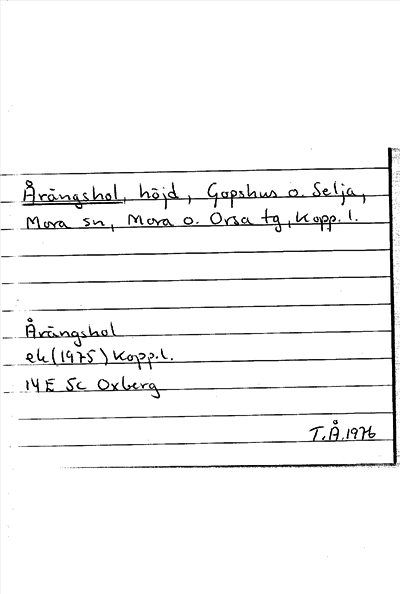 Årängshol, höjd, Gopshus o. Selja,
Mora sn, Mora o. Orsa tg, Kopp. l.
Årängshol
ek (1975) Kopp.l.
14E 5c Oxberg
T.Å.1976